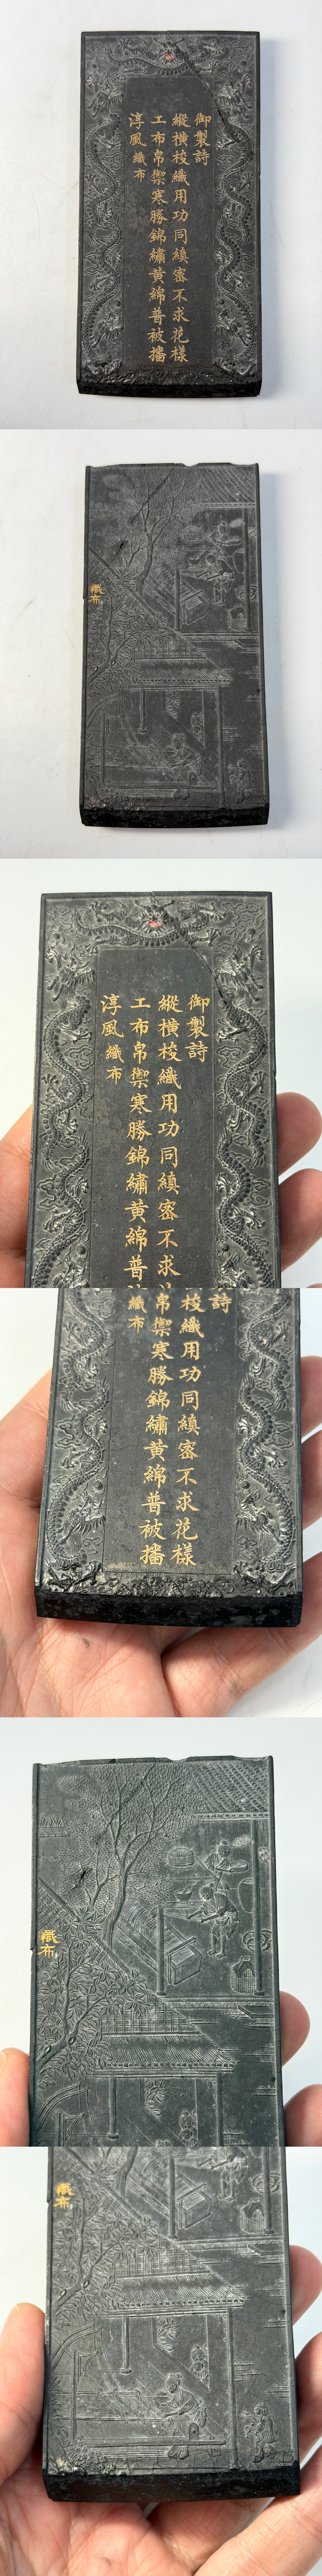 御製詩
縱橫梭織用功同縝密不求花樣
工布帛禦寒勝錦繡黃綿普被擋
淳風 織布
織布
御製詩
縱橫梭織用功同縝密不求
工布帛禦寒勝錦繡黃綿普
淳風 織布
詩
梭織用功同縝密不求花樣
帛禦寒勝錦繡黃綿普被擋
織布
織布
織布